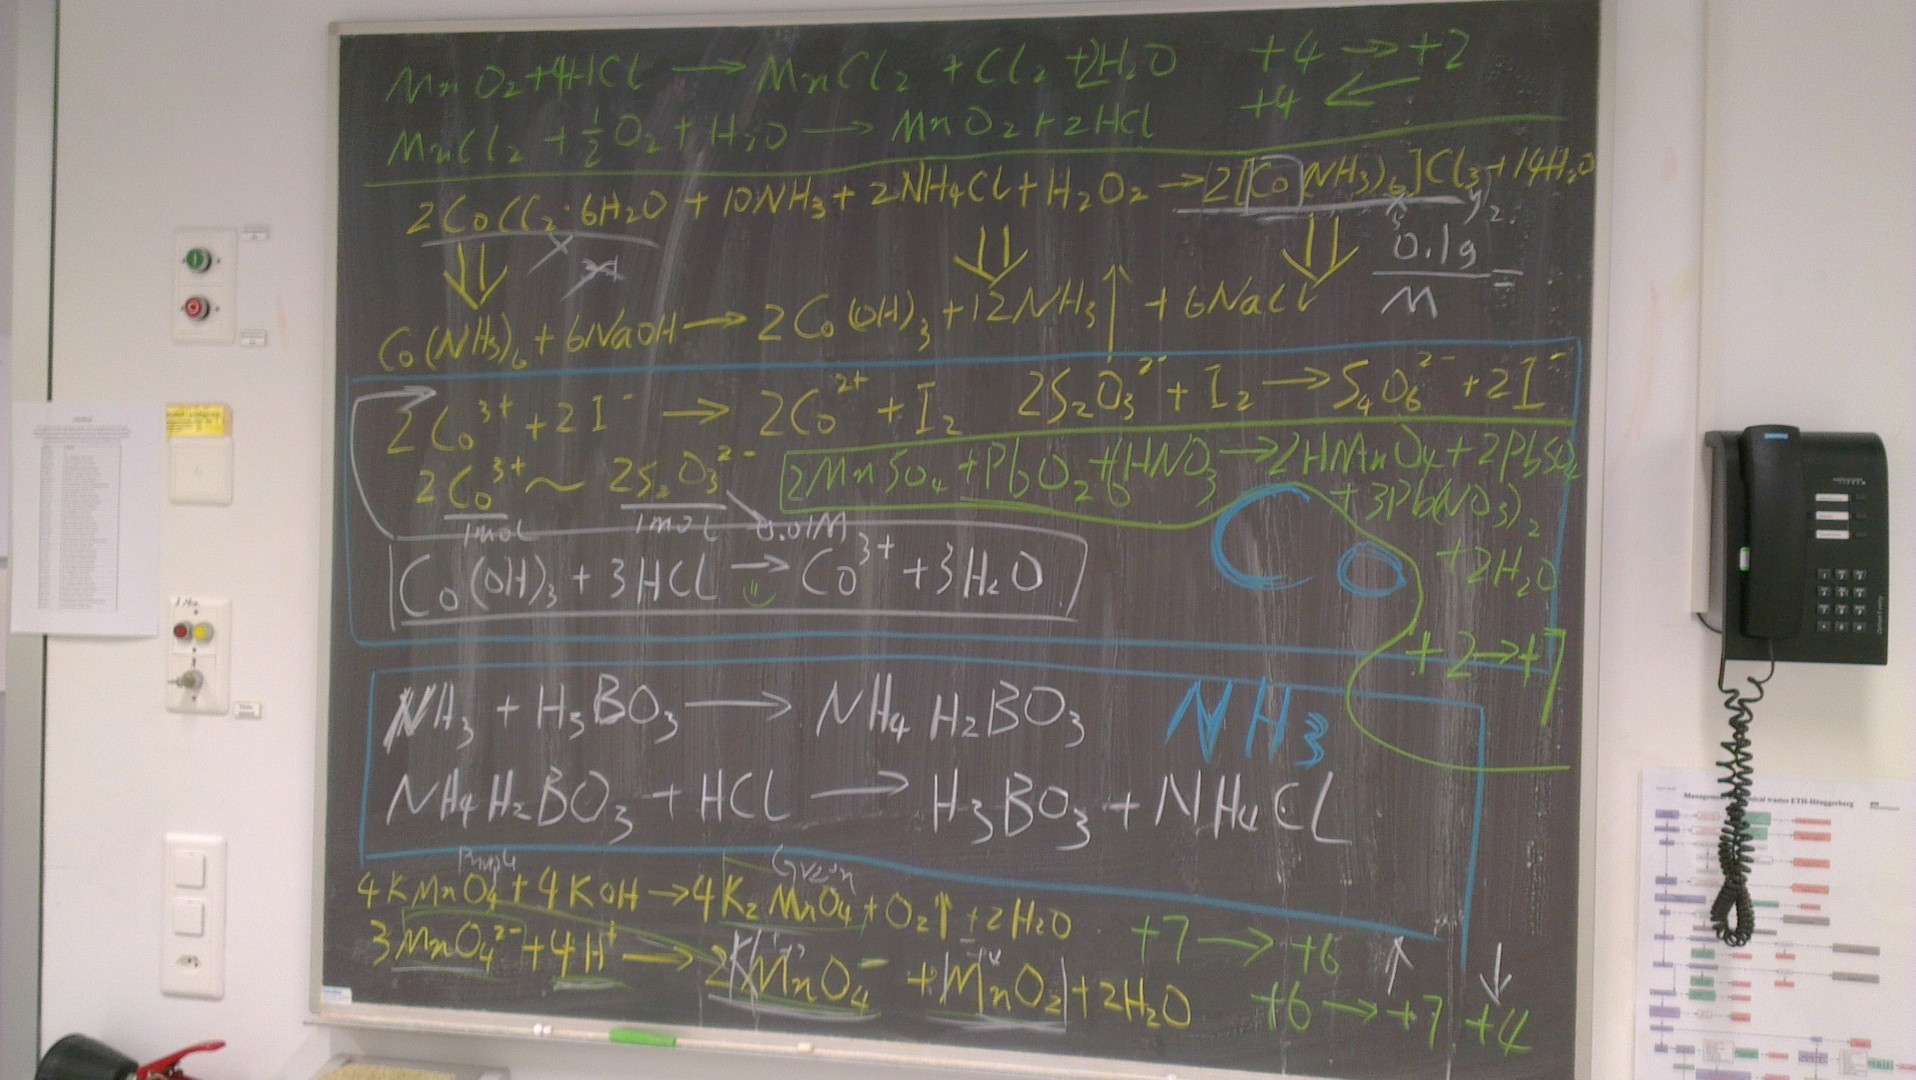 MnO₂+4HCl → MnCl₂ + Cl₂ +2H₂O +4 → +2
+4 ←
MnCl₂ + ½O₂ + H₂O → MnO₂+2HCl
2CoCl₂·6H₂O + 10NH₃ + 2NH₄Cl + H₂O₂ → 2[Co(NH₃)₆]Cl₃ + 14H₂O
x y
0.1g
M =
Co(NH₃)₆ + 6NaOH → 2Co(OH)₃ + 12NH₃ ↑ + 6NaCl
2Co³⁺ + 2I⁻ → 2Co²⁺ + I₂ 2S₂O₃²⁻ + I₂ → S₄O₆²⁻ + 2I⁻
2Co³⁺ ~ 2S₂O₃²⁻
1mol 1mol 0.01M
2MnSO₄ + PbO₂ + 6HNO₃ → 2HMnO₄ + 2PbSO₄
+ 3Pb(NO₃)₂
+2H₂O
+2→+7
Co
Co(OH)₃ + 3HCl → Co³⁺ + 3H₂O
NH₃ + H₃BO₃ → NH₄H₂BO₃ NH₃
NH₄H₂BO₃ + HCl → H₃BO₃ + NH₄CL
Purple Green
4KMnO₄ + 4KOH → 4K₂MnO₄ + O₂↑ + 2H₂O +7 → +6
3MnO₄²⁻ + 4H⁺ → 2KMnO₄⁻ + MnO₂ + 2H₂O +6 → +7 +4
Management chemical wastes ETH-Hönggerberg